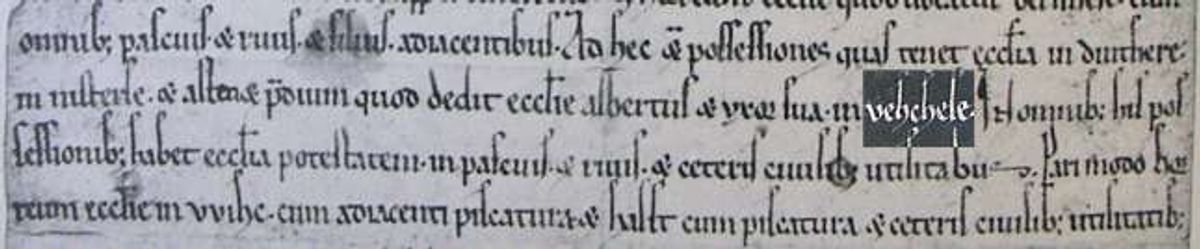 omnib; pascuis · & riuis · & siluis · adiacentibus · Ad hec & possessiones quas tenet eccłia in dunthere·
in · & altera p̄dium quod dedit eccłie albertus & uxor sua · in vehchele · In omnib; his pos
sessionib; habet eccłia potestatem · in pascuis · & riuis · & ceteris ciuilib; utilitabus · Pari modo
eccłie in vvihc · cum adiacenti piscatura · & cum piscatura & ceteris ciuilib; utilitatib;